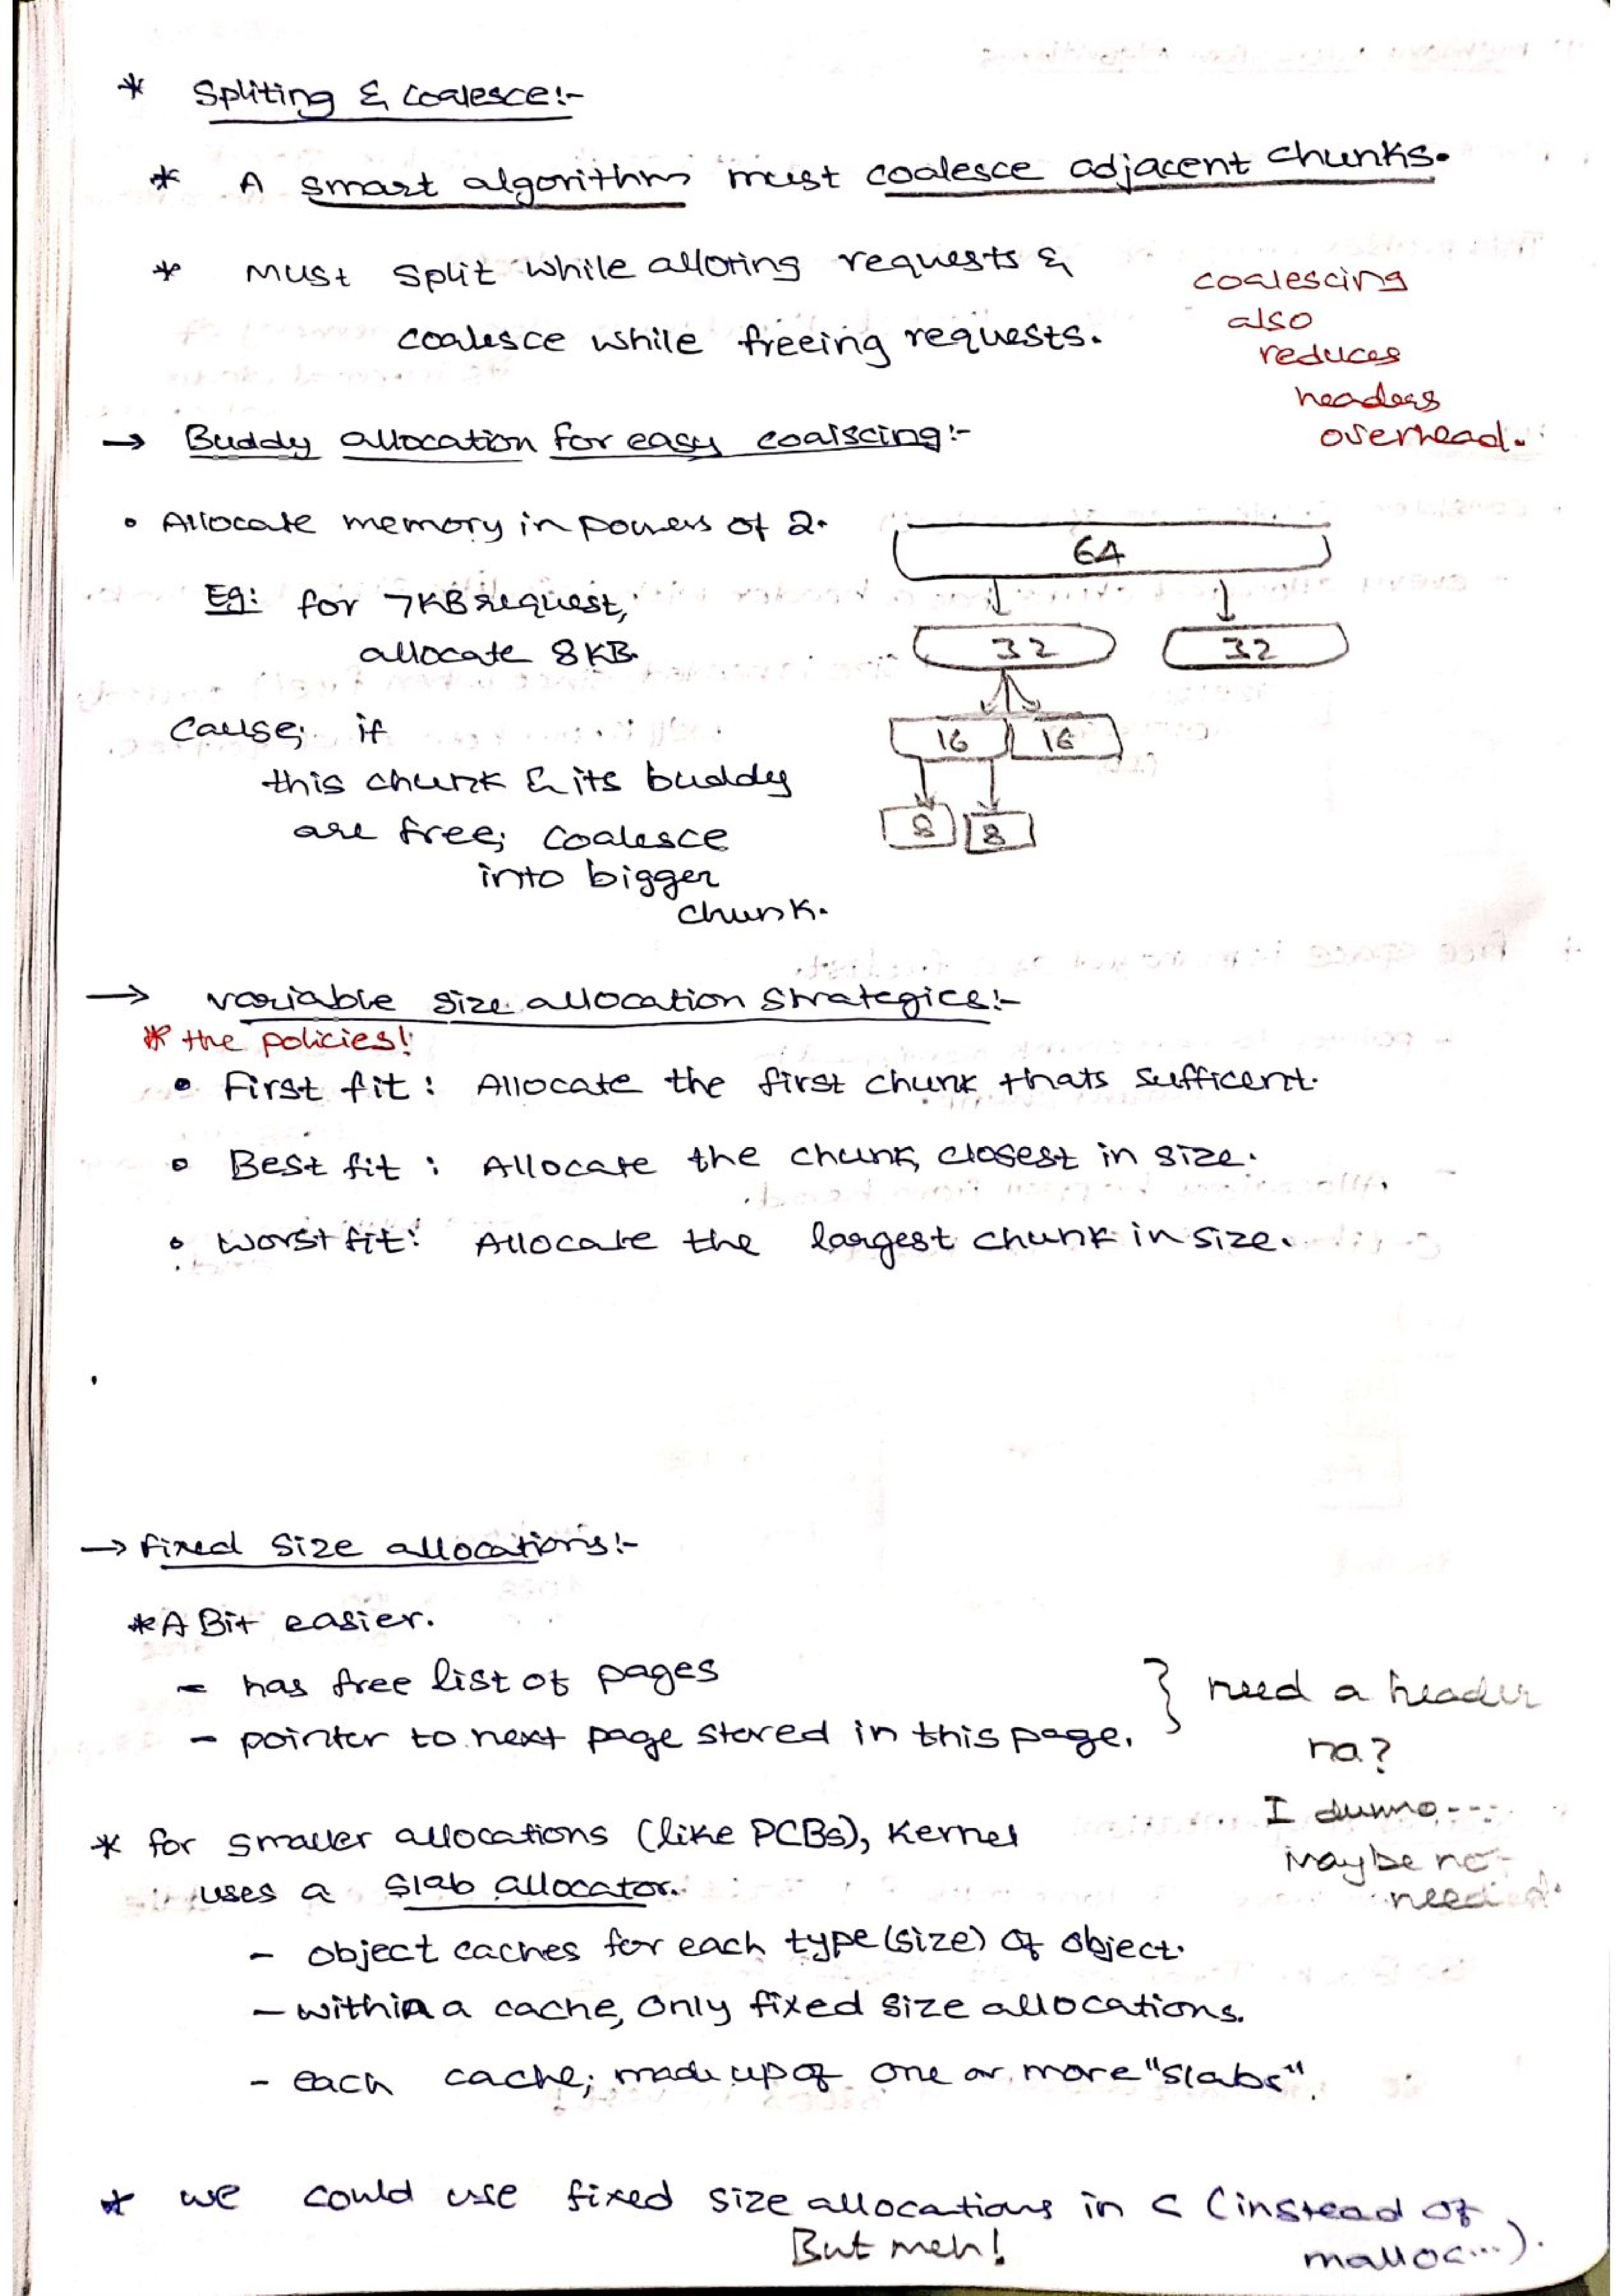 * Spliting & Coalesce:-
* A smart algorithm must coalesce adjacent chunks.
* Must split while alloting requests &
coalesce while freeing requests.
coalescing
also
reduces
headers
overhead.
→ Buddy allocation for easy coalscing:-
• Allocate memory in powers of 2.
Eg: for 7KB request,
allocate 8KB.
Cause; if
this chunk & its buddy
are free; coalesce
into bigger
chunk.
64
32 32
16 16
8 8
→ variable size allocation strategies:-
* the policies!
• First fit: Allocate the first chunk thats sufficent.
• Best fit: Allocate the chunk closest in size.
• Worst fit: Allocate the largest chunk in size.
→ fixed size allocations:-
* A Bit easier.
- has free list of pages
- pointer to next page stored in this page.
} need a header
na?
I dunno...
Maybe no
need.
* for smaller allocations (like PCBs), Kernel
uses a slab allocator.
- object caches for each type (size) of object.
- within a cache, only fixed size allocations.
- each cache; made up of one or more "slabs".
* we could use fixed size allocations in C (instead of
malloc...).
But meh!